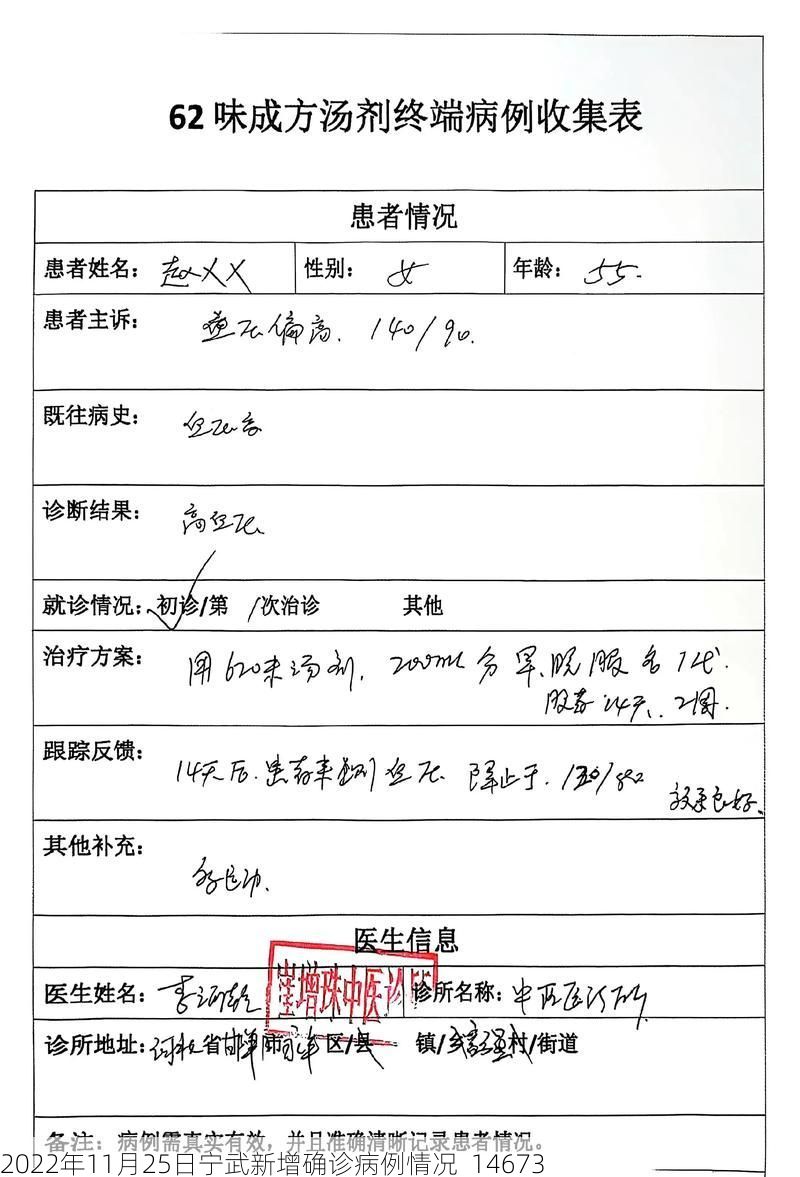 62味成方汤剂终端病例收集表
患者情况
患者姓名: 赵XX 性别: 女 年龄: 55.
患者主诉: 血压偏高. 140/90.
既往病史: 血压高
诊断结果: 高血压
就诊情况: 初诊/第 /次治诊 其他
治疗方案: 用62味汤剂, 200ml 分早、晚服各1代.
服药14天、2周.
跟踪反馈: 14天后. 患者来 血压 降 于.
效果良好.
其他补充: 多运动.
医生信息
医生姓名: 李 诊所名称: 中医诊所
崔增珠中医诊所
诊所地址: 河北省邯郸市 区/县 镇/乡 村/街道
备注: 病例需真实有效, 并且准确清晰记录患者情况。
2022年11月25日宁武新增确诊病例情况 14673